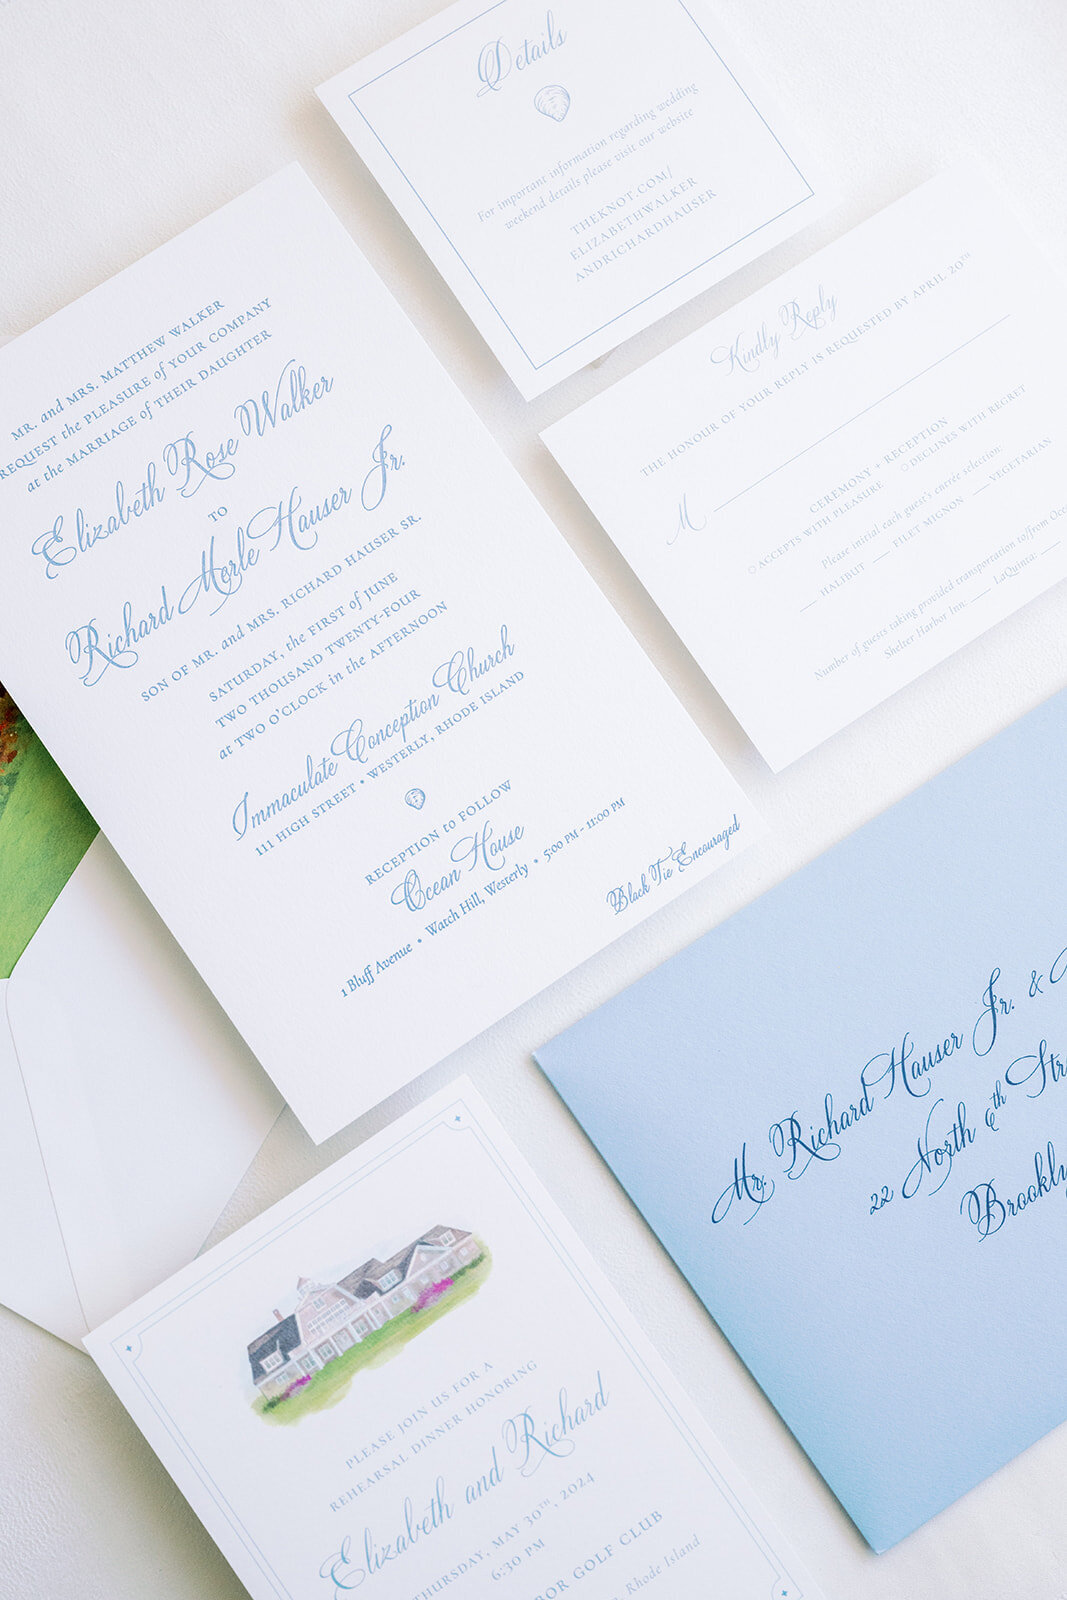 Details
For important information regarding wedding
weekend details please visit our website
THEKNOT.COM/
ELIZABETHWALKER
ANDRICHARDHAUSER
MR. and MRS. MATTHEW WALKER
REQUEST the PLEASURE of YOUR COMPANY
at the MARRIAGE of THEIR DAUGHTER
Elizabeth Rose Walker
TO
Richard Merle Hauser Jr.
SON OF MR. and MRS. RICHARD HAUSER SR.
SATURDAY, the FIRST of JUNE
TWO THOUSAND TWENTY-FOUR
at TWO O'CLOCK in the AFTERNOON
Immaculate Conception Church
111 HIGH STREET • WESTERLY, RHODE ISLAND
RECEPTION to FOLLOW
Ocean House
1 Bluff Avenue • Watch Hill, Westerly • 5:00 PM - 11:00 PM
Black Tie Encouraged
Kindly Reply
THE HONOUR OF YOUR REPLY IS REQUESTED BY APRIL 20TH
M
CEREMONY + RECEPTION
ACCEPTS WITH PLEASURE DECLINES WITH REGRET
Please initial each guest's entrée selection:
HALIBUT FILET MIGNON VEGETARIAN
Number of guests taking provided transportation to/from
Shelter Harbor Inn: LaQuinta:
Mr. Richard Hauser Jr. &
22 North 6th
PLEASE JOIN US FOR A
REHEARSAL DINNER HONORING
Elizabeth and Richard
THURSDAY, MAY 30TH, 2024
6:30 PM
GOLF CLUB
Rhode Island